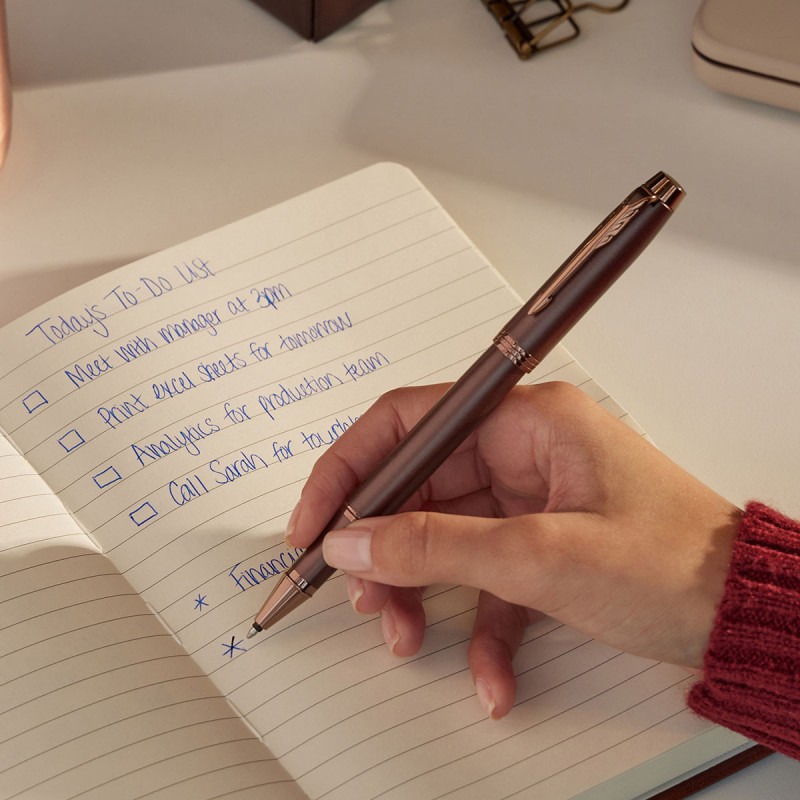 Todays To-Do List
Meet with manager at 3pm
Print excel sheets for tomorrow
Analytics for production team
Call Sarah for
* 
*